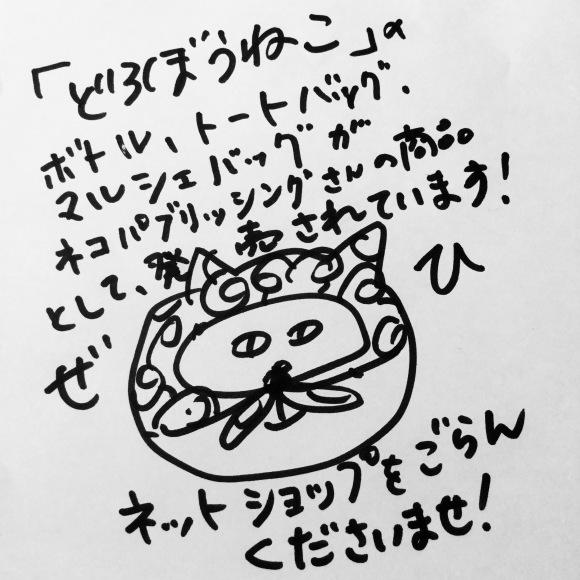 「どろぼうねこ」の
ボトル、トートバッグ、
マルシェバッグが
ネコパブリッシングさんの商品
として、発売されています!
ぜ ひ
ネットショップをごらん
くださいませ!